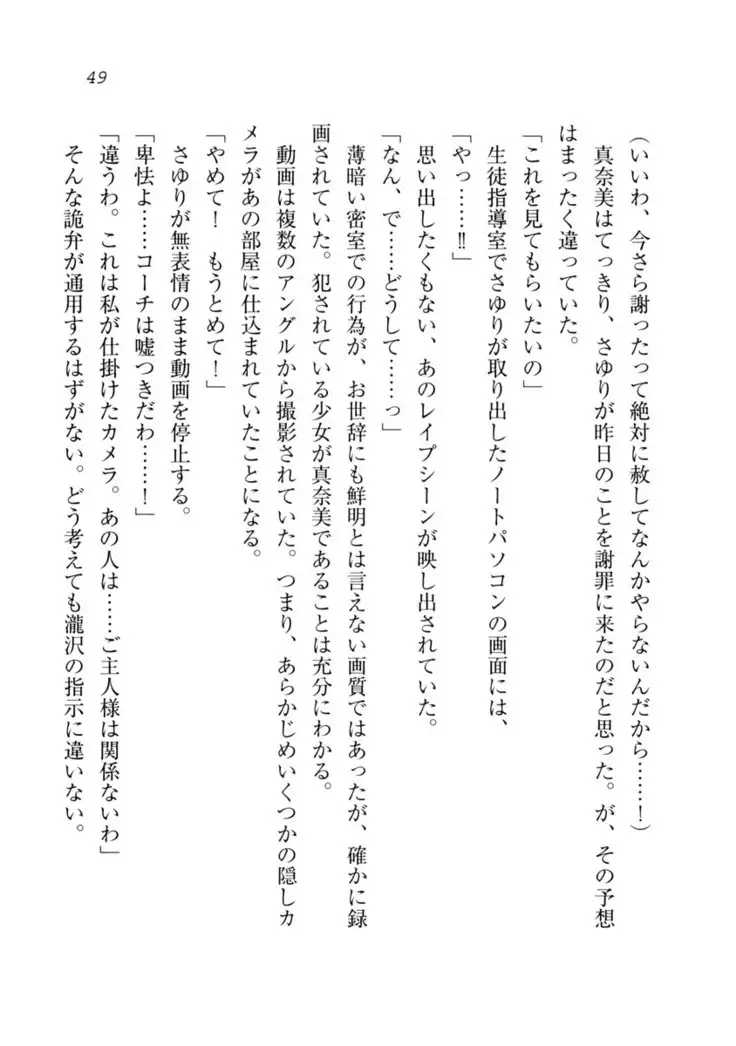 49
（いいわ、今さら謝ったって絶対に赦してなんかやらないんだから……！）
真奈美はてっきり、さゆりが昨日のことを謝罪に来たのだと思った。が、その予想
はまったく違っていた。
「これを見てもらいたいの」
生徒指導室でさゆりが取り出したノートパソコンの画面には、
「やっ……‼」
思い出したくもない、あのレイプシーンが映し出されていた。
「なん、で……どうして……っ」
薄暗い密室での行為が、お世辞にも鮮明とは言えない画質ではあったが、確かに録
画されていた。犯されている少女が真奈美であることは充分にわかる。
動画は複数のアングルから撮影されていた。つまり、あらかじめいくつかの隠しカ
メラがあの部屋に仕込まれていたことになる。
「やめて！　もうとめて！」
さゆりが無表情のまま動画を停止する。
「卑怯よ……コーチは嘘つきだわ……！」
「違うわ。これは私が仕掛けたカメラ。あの人は……ご主人様は関係ないわ」
そんな詭弁が通用するはずがない。どう考えても瀧沢の指示に違いない。